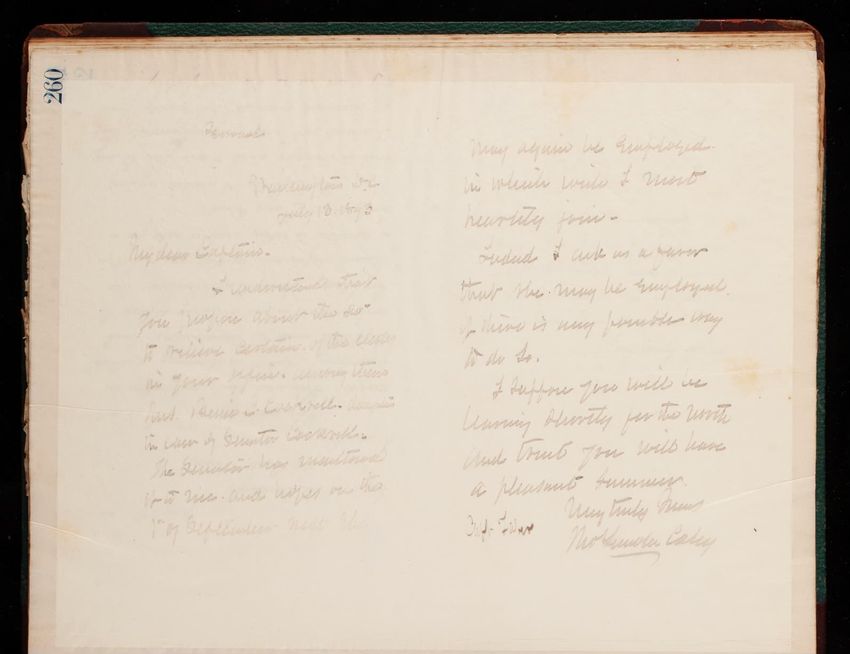 260
Personal
Washington DC
July 13. 1893
My dear Captain.
I understand that
you propose about the 20th
to relieve certain of the clerks
in your office. among them
C. Cockrell.
of Senator Cockrell.
The Senator has mentioned
it to me. and hopes on the
1st of September next she
may again be employed.
in which wish I most
heartily join.
Indeed I ask as a favor
that she may be employed.
if there is any possible way
to do so.
I suppose you will be
leaving shortly for the North
and trust you will have
a pleasant summer.
Very truly Yours
Thos Lincoln Casey
Capt.